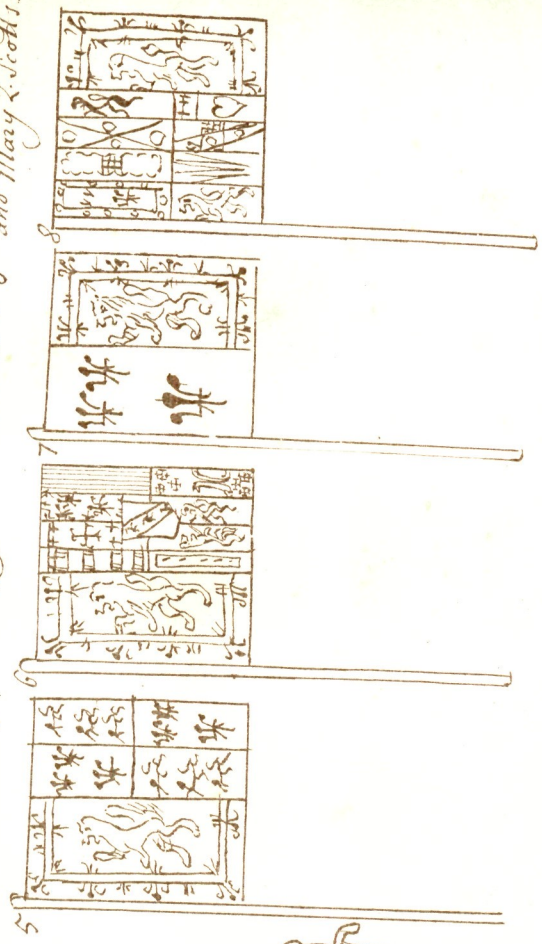 and Mary Q. Scotts.
8
7
6
5